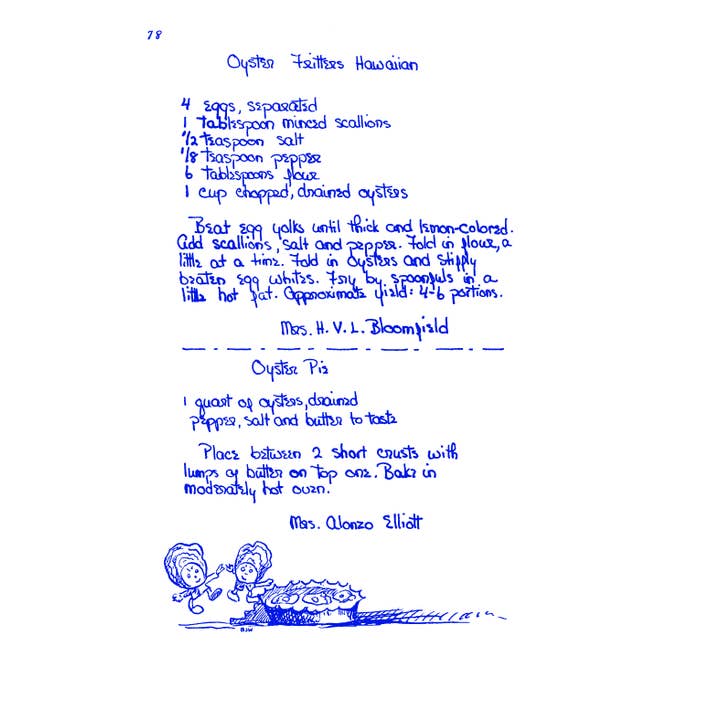 78
Oyster Fritters Hawaiian
4 eggs, separated
1 tablespoon minced scallions
1/2 teaspoon salt
1/8 teaspoon pepper
6 tablespoons flour
1 cup chopped, drained oysters
Beat egg yolks until thick and lemon-colored.
Add scallions, salt and pepper. Fold in flour, a
little at a time. Fold in oysters and stiffly
beaten egg whites. Fry by spoonfuls in a
little hot fat. Approximate yield: 4-6 portions.
Mrs. H. V. L. Bloomfield
Oyster Pie
1 quart of oysters, drained
pepper, salt and butter to taste
Place between 2 short crusts with
lumps of butter on top one. Bake in
moderately hot oven.
Mrs. Alonzo Elliott